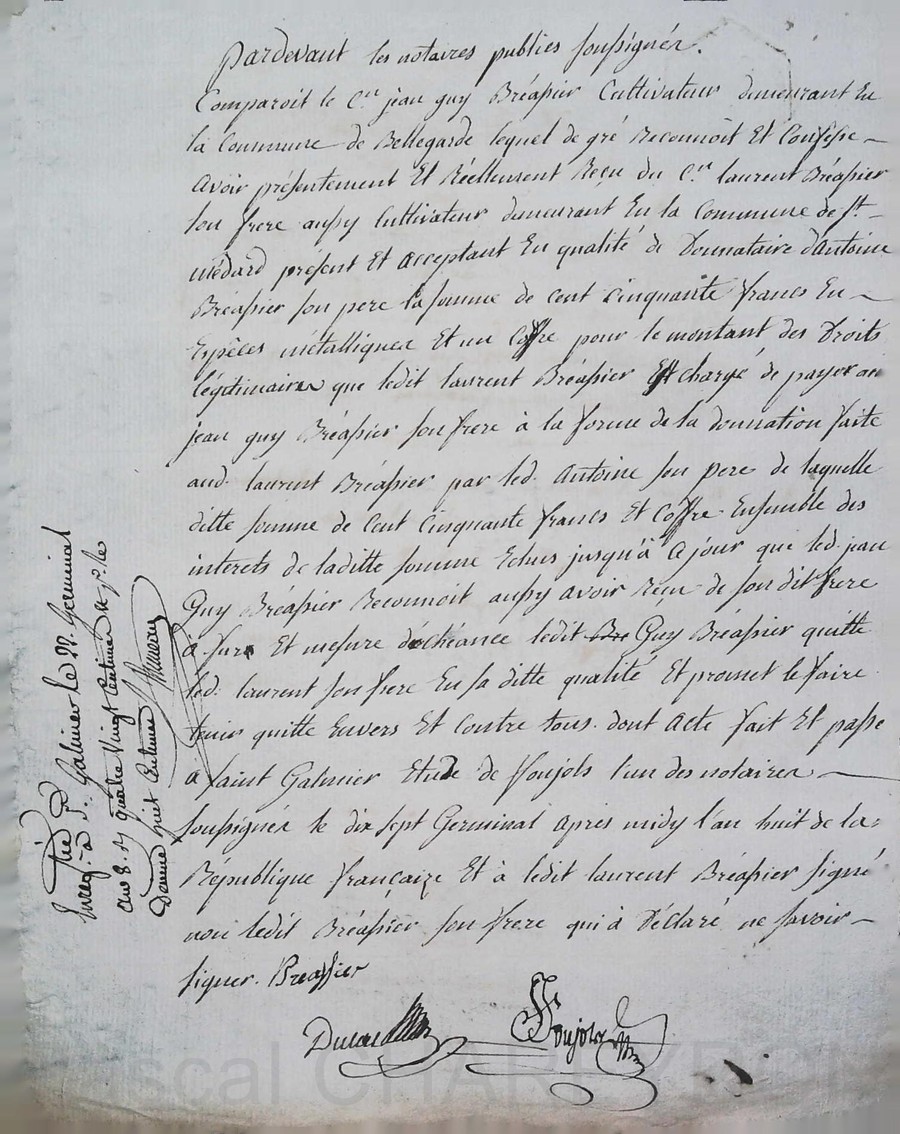 Pardevant les notaires publics soussignés.
Comparoit le C.en jean guy Bréassier Cultivateur demeurant En
la Commune de Bellegarde lequel de gré Reconnoit Et Confesse
avoir présentement Et Réellement Reçu du C.en laurent Bréassier
son frere aussy Cultivateur demeurant En la Commune de st.
médard présent Et acceptant En qualité de Donnataire d'antoine
Bréassier son pere la somme de cent cinquante francs En
Espèces métalliques Et un Coffre pour le montant des Droits
légitimaires que ledit laurent Bréassier Est chargé de payer au
jean guy Bréassier son frere à la forme de la donnation faite
aud. laurent Bréassier par led. Antoine son pere de laquelle
ditte somme de Cent Cinquante francs Et Coffre Ensemble des
interets de laditte somme Echus jusqu'à a jour que led. jean
Guy Bréassier Reconnoit aussy avoir Reçu de son dit frere
à fur Et mesure d'échéance ledit Bre Guy Bréassier quitte
led. laurent son frere En sa ditte qualité Et promet le faire
tenir quitte Envers Et Contre tous. dont Acte fait Et passé
à saint Galmier Etude de Soujols l'un des notaires
soussignés le dix sept Germinal après midy l'an huit de la
République françaize Et à ledit laurent Bréassier signé
non ledit Bréassier son frere qui à Déclaré ne savoir
signer. Breassier
Soujols
Enreg. à S. Galmier le 22. Germinal
an 8.
quatre Vingt Centimes
huit Centimes